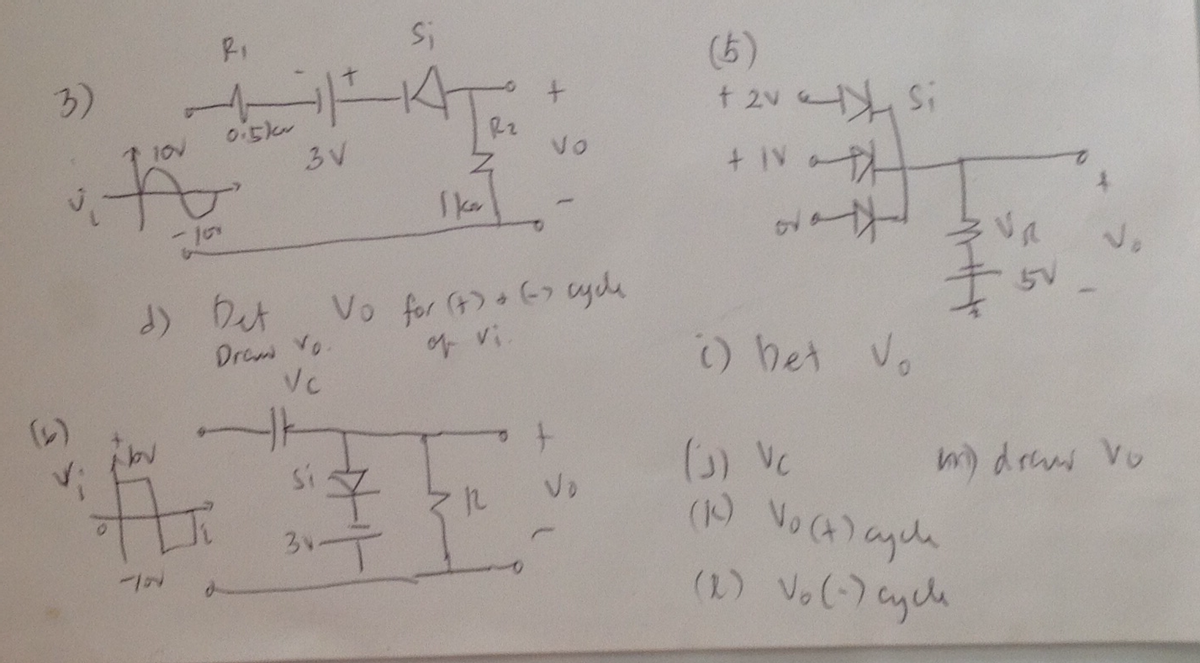 3)
R1
- +
Si
0.5kΩ
3V
R2
1kΩ
+
Vo
-
Vi
10V
-10V
d) Det Vo for (+) & (-) cycle
Draw Vo. of Vi.
(5)
+ 2V
Si
+ 1V
0V
VR
5V
+
Vo
-
i) Det Vo
(6)
Vc
Vi
+
10V
0
-10V
Si
3V
R
+
Vo
-
(j) Vc
m) draw Vo
(k) Vo (+) cycle
(l) Vo (-) cycle